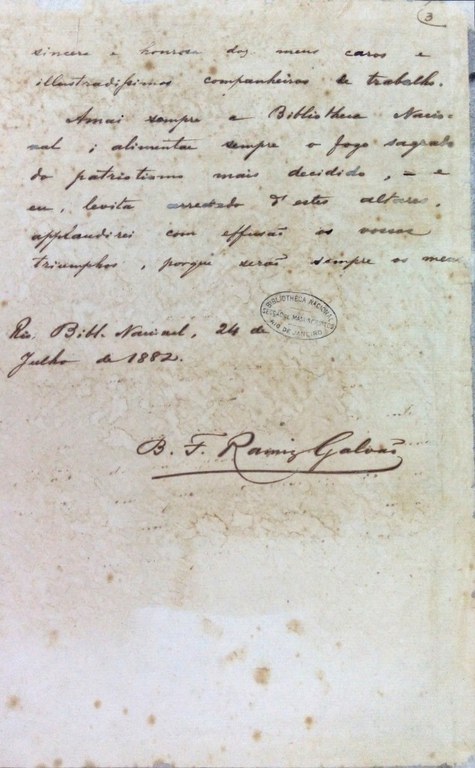 3
sincera e honrosa dos meus caros e
illustradissimos companheiros de trabalho.
Amai sempre a Bibliotheca Nacio-
nal; alimentae sempre o fogo sagrado
do patriotismo mais decidido, — e
eu, levita arredado d'estes altares,
applaudirei com effusão os vossos
triumphos, porque serão sempre os meus
BIBLIOTHECA NACIONAL
RIO DE JANEIRO
Rio. Bibl. Nacional, 24 de
Julho de 1882.
B. F. Ramiz Galvão